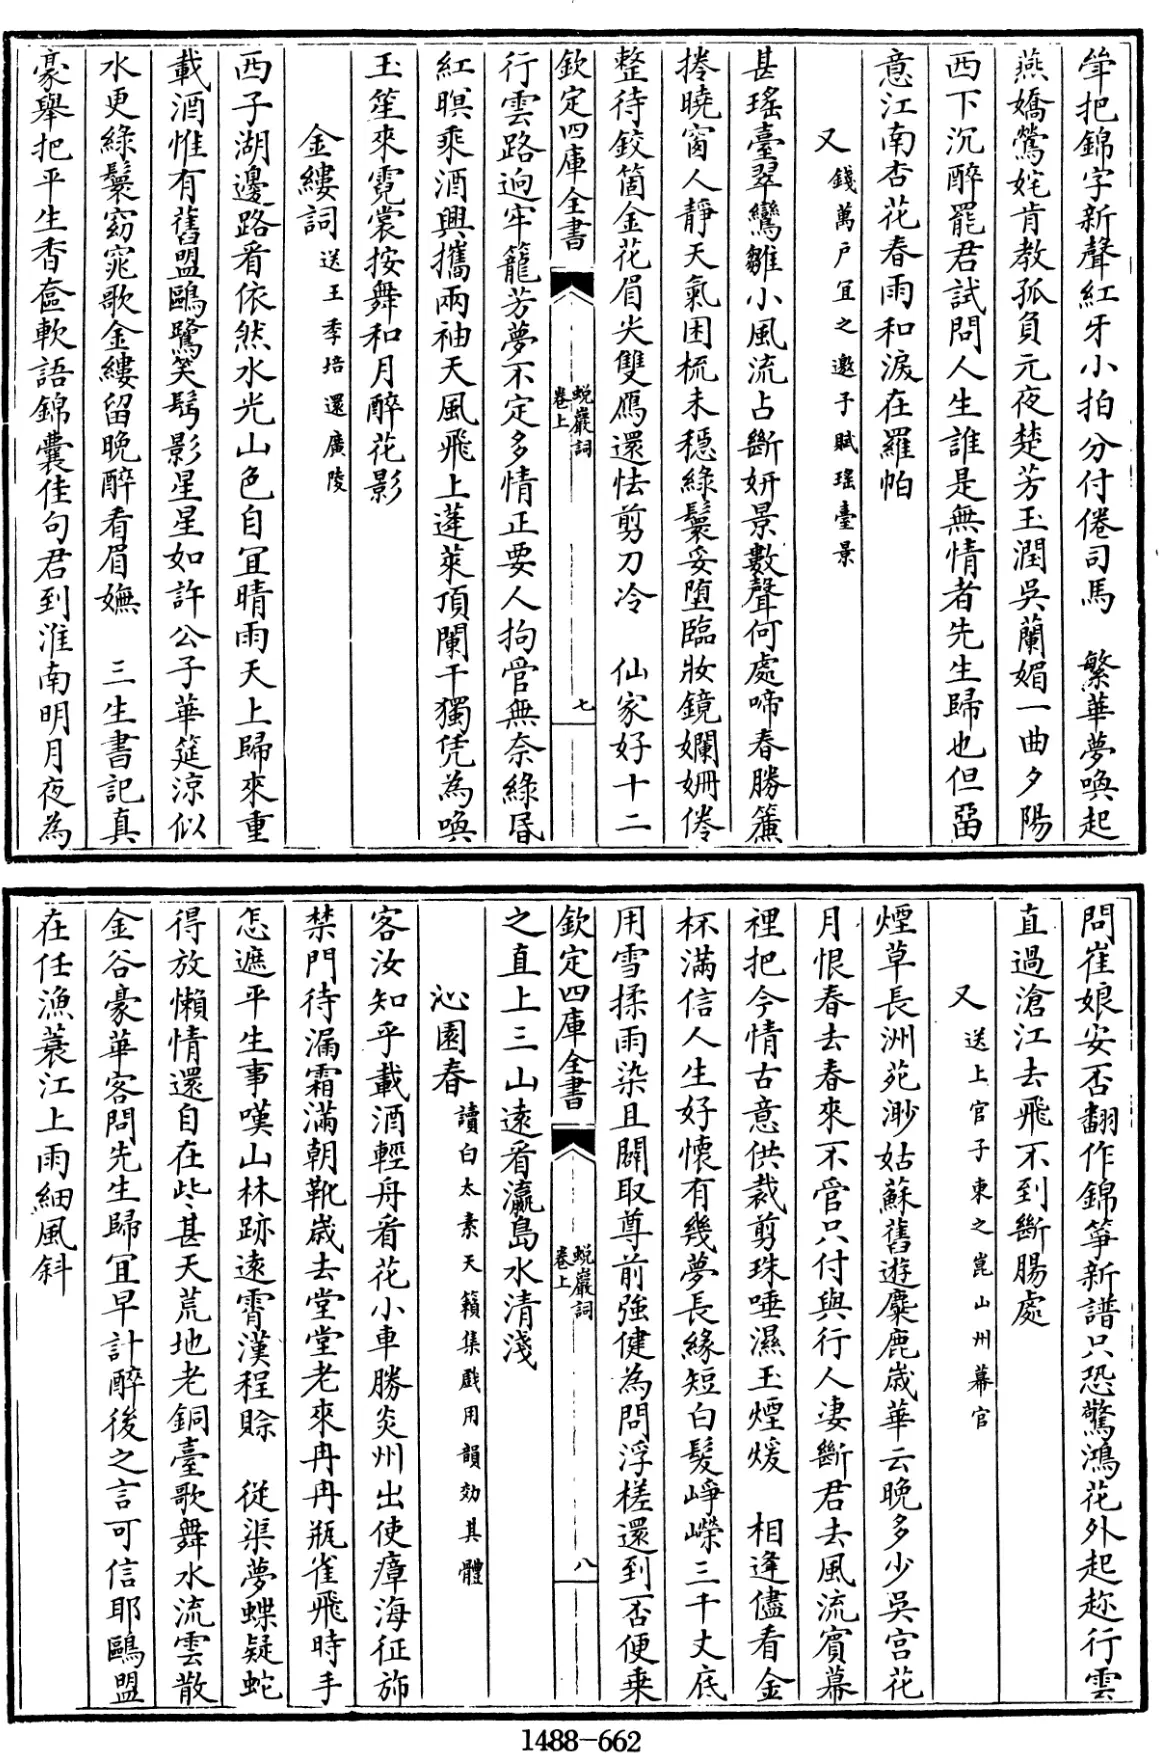 聳把錦字新聲紅牙小拍分付倦司馬　繁華夢喚起
燕嬌鶯姹肯教孤負元夜楚芳玉潤吳蘭媚一曲夕陽
西下沉醉罷君試問人生誰是無情者先生歸也但留
意江南杏花春雨和淚在羅帕
又錢萬户宜之邀予賦瑤臺景
甚瑤臺翠鸞雛小風流占斷妍景數聲何處啼春勝簾
捲曉窗人靜天氣困梳未穩綠鬟妥墮臨妝鏡斕姍倦
整待鉸箇金花眉尖雙鴈還怯剪刀冷　仙家好十二
欽定四庫全書
蛻巖詞
卷上
七
行雲路逈牢籠芳夢不定多情正要人拘管無奈綠昏
紅暝乘酒興攜兩袖天風飛上蓬萊頂闌干獨凭為喚
玉笙來霓裳按舞和月醉花影
金縷詞送王季培還廣陵
西子湖邊路看依然水光山色自宜晴雨天上歸來重
載酒惟有舊盟鷗鷺笑鬂影星星如許公子華筵涼似
水更綠鬟窈窕歌金縷留晩醉看眉嫵　三生書記真
豪舉把平生香奩軟語錦囊佳句君到淮南明月夜為
問崔娘安否翻作錦箏新譜只恐驚鴻花外起趂行雲
直過滄江去飛不到斷腸處
又送上官子東之崑山州幕官
煙草長洲苑渺姑蘇舊遊麋鹿歳華云晩多少吳宮花
月恨春去春來不管只付與行人凄斷君去風流賓幕
裡把今情古意供裁剪珠唾濕玉煙煖　相逢儘看金
杯滿信人生好懷有幾夢長緣短白髪崢嶸三千丈底
用雪揉雨染且鬭取尊前強健為問浮槎還到否便乗
欽定四庫全書
蛻巖詞
卷上
八
之直上三山遠看瀛島水清淺
沁園春讀白太素天籟集戲用韻効其體
客汝知乎載酒輕舟看花小車勝炎州出使瘴海征斾
禁門待漏霜滿朝靴歳去堂堂老來冉冉瓶雀飛時手
怎遮平生事嘆山林跡遠霄漢程賒　從渠夢蝶疑蛇
得放懶情還自在些甚天荒地老銅臺歌舞水流雲散
金谷豪華客問先生歸宜早計醉後之言可信耶鷗盟
在任漁蓑江上雨細風斜
1488-662